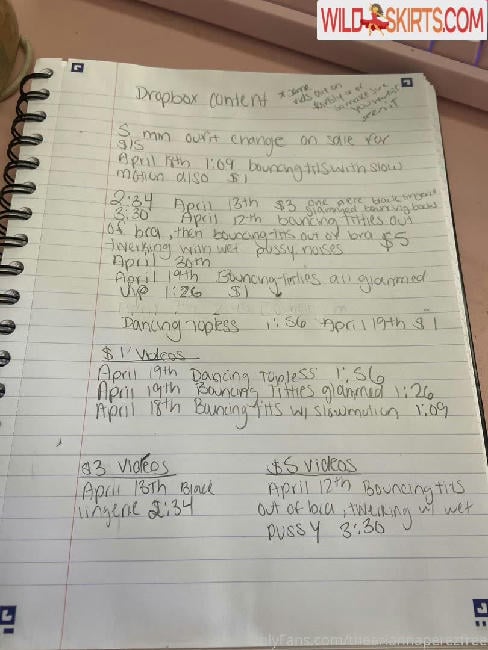 WILD SKIRTS.COM
Dropbox content
5 min outfit change on sale for
$15
April 18th 1:09 bouncing tits with slow
motion also $1
2:34 April 13th $3
3:30 April 12th bouncing titties out
of bra, then bouncing tits out of bra $5
twerking with wet pussy noises
April 30th
April 19th Bouncing titties all glammed
up 1:26 $1
Dancing topless 1:56 April 19th $1
$1 Videos
April 19th Dancing topless 1:56
April 19th Bouncing Titties glammed 1:26
April 18th Bouncing tits w/ slowmotion 1:09
$3 Videos
April 13th Black
lingerie 2:34
$5 videos
April 12th Bouncing tits
out of bra, twerking w/ wet
pussy 3:30
onlyfans.com/theariannaperezfree